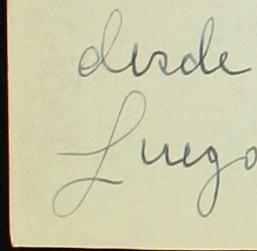 desde
Luego